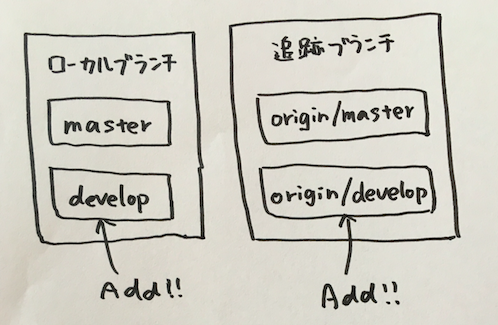 ローカルブランチ
master
develop
Add!!
追跡ブランチ
origin/master
origin/develop
Add!!